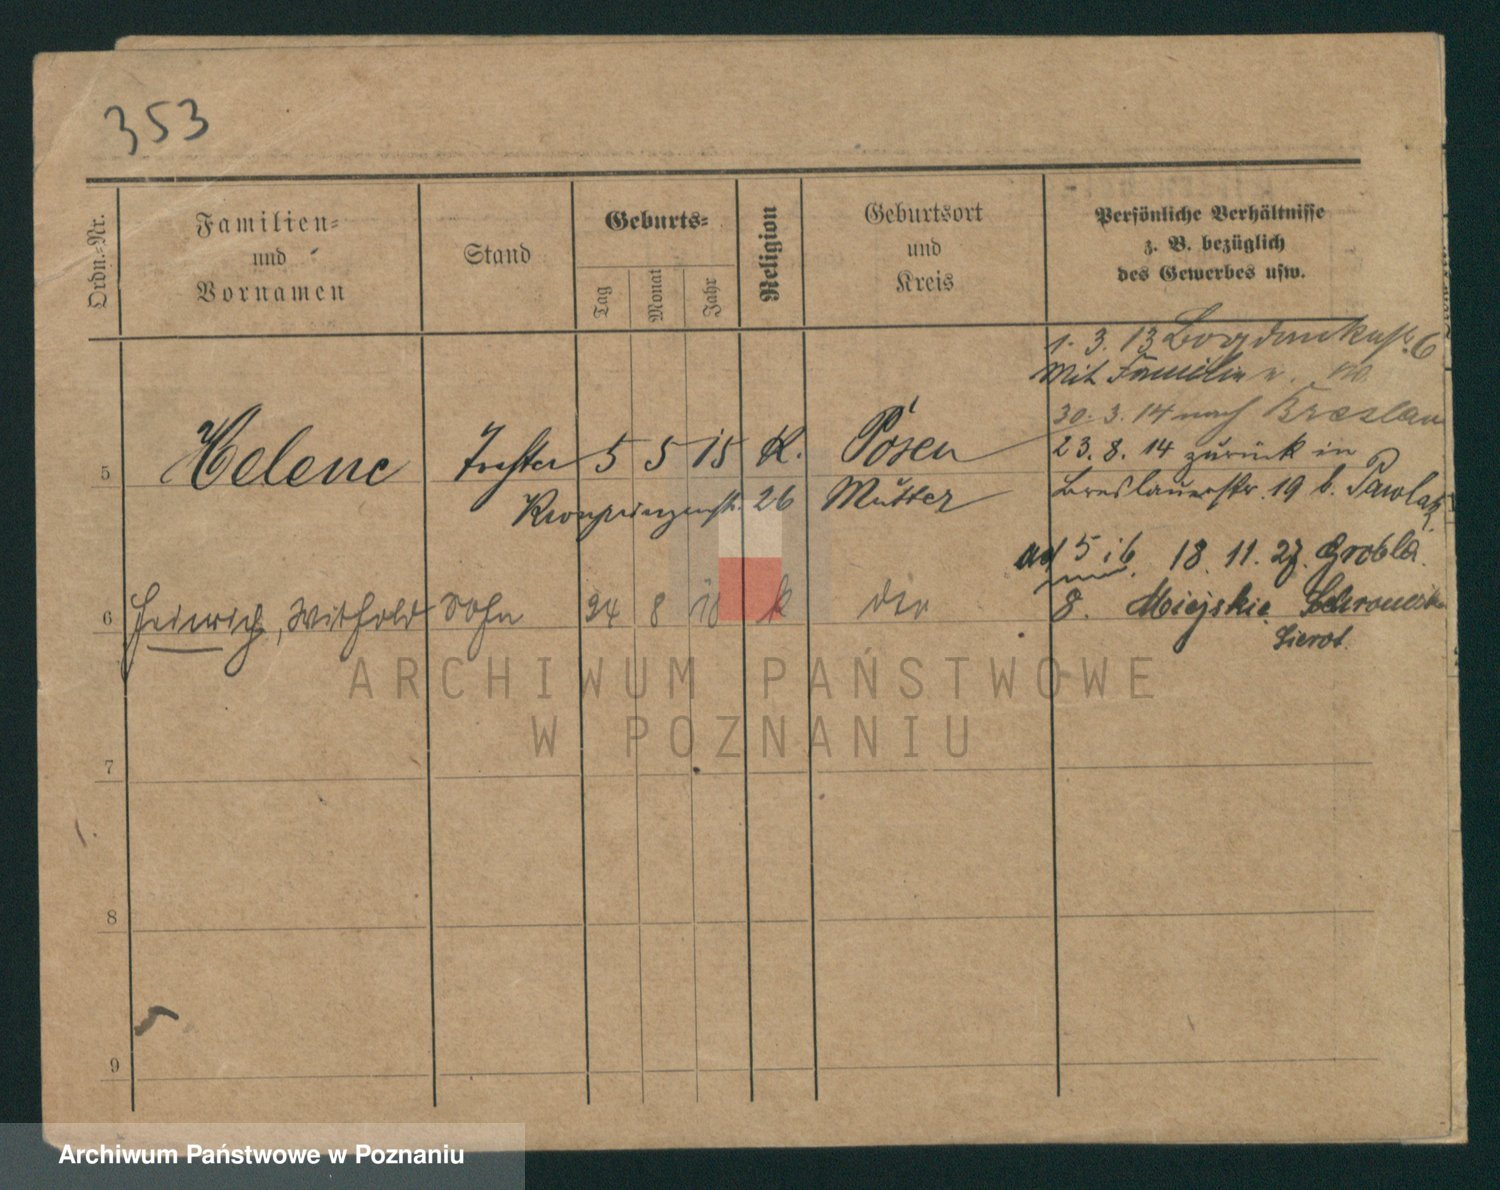 353
Ordn.-Nr.
Familien-
und
Vornamen
Stand
Geburts-
Tag
Monat
Jahr
Religion
Geburtsort
und
Kreis
Persönliche Verhältnisse
z. B. bezüglich
des Gewerbes usw.
1. 3. 13 6
Mit Familie
30. 3. 14 nach Breslau
23. 8. 14 zurück in
Breslauerstr. 19 b. Pawlak
5 Helene Tochter 5 5 15 K. Posen
Kronprinzenstr. 26 Mutter
ad 5 i 6 18. 11. 27. Grobla
8. Miejskie Schronisko
Sierot.
6 Heinrich, Withold Sohn 24 8 18 k
7
8
9
ARCHIWUM PAŃSTWOWE
W POZNANIU
Archiwum Państwowe w Poznaniu